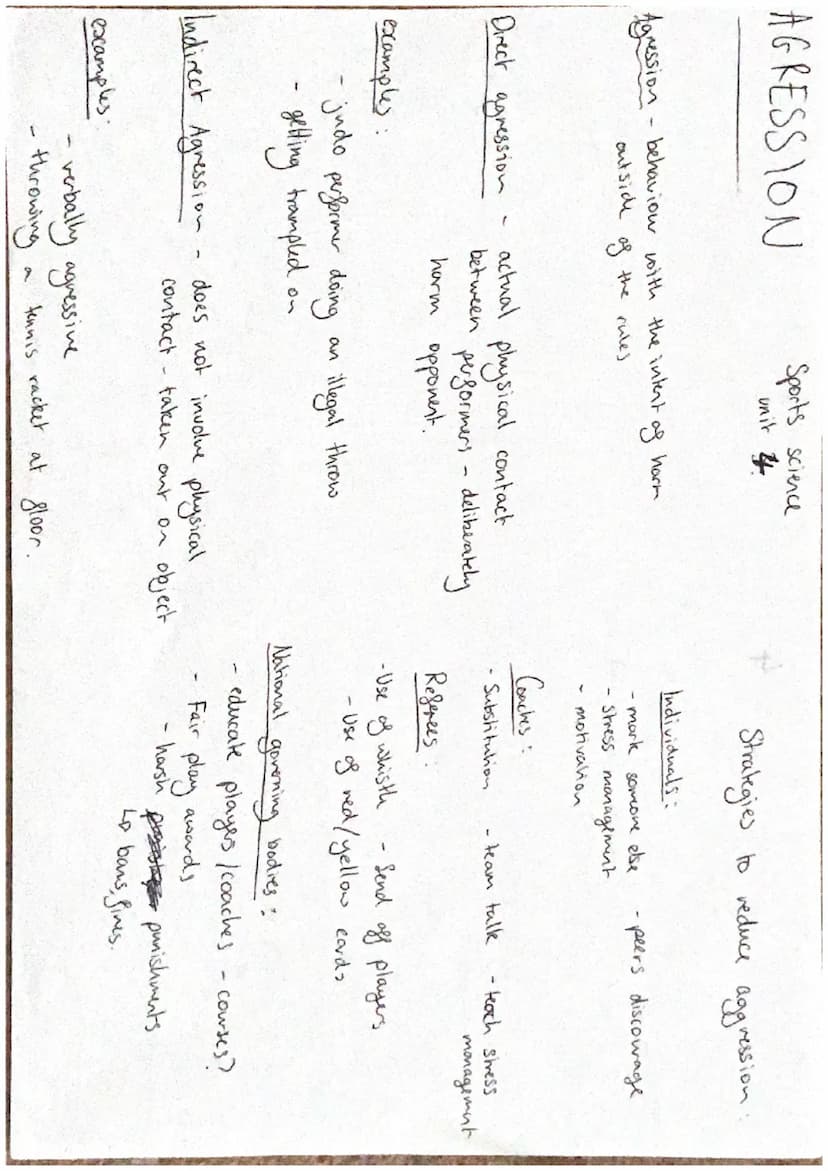 AGRESSION
Sports science
unit 4.
Agression - behaviour with the intent of harm
outside of the rules
Direct agression - actual physical contact
between performers - deliberately
harm opponent.
examples :
- judo performer doing an illegal throw
- getting trampled on
Indirect Agression - does not involve physical
contact - taken out on object
examples :
- verbally agressive
- throwing a tennis racket at floor.
Strategies to reduce aggression :
Individuals :
- mark someone else - peers discourage
- stress management
- motivation
Coaches :
- Substitution - team talk - teach stress
management
Referees :
- Use of whistle - Send off players
- Use of red/yellow cards
National governing bodies :
- educate players/coaches - courses?
- Fair play awards
- harsh punishments
↳ bans, fines.